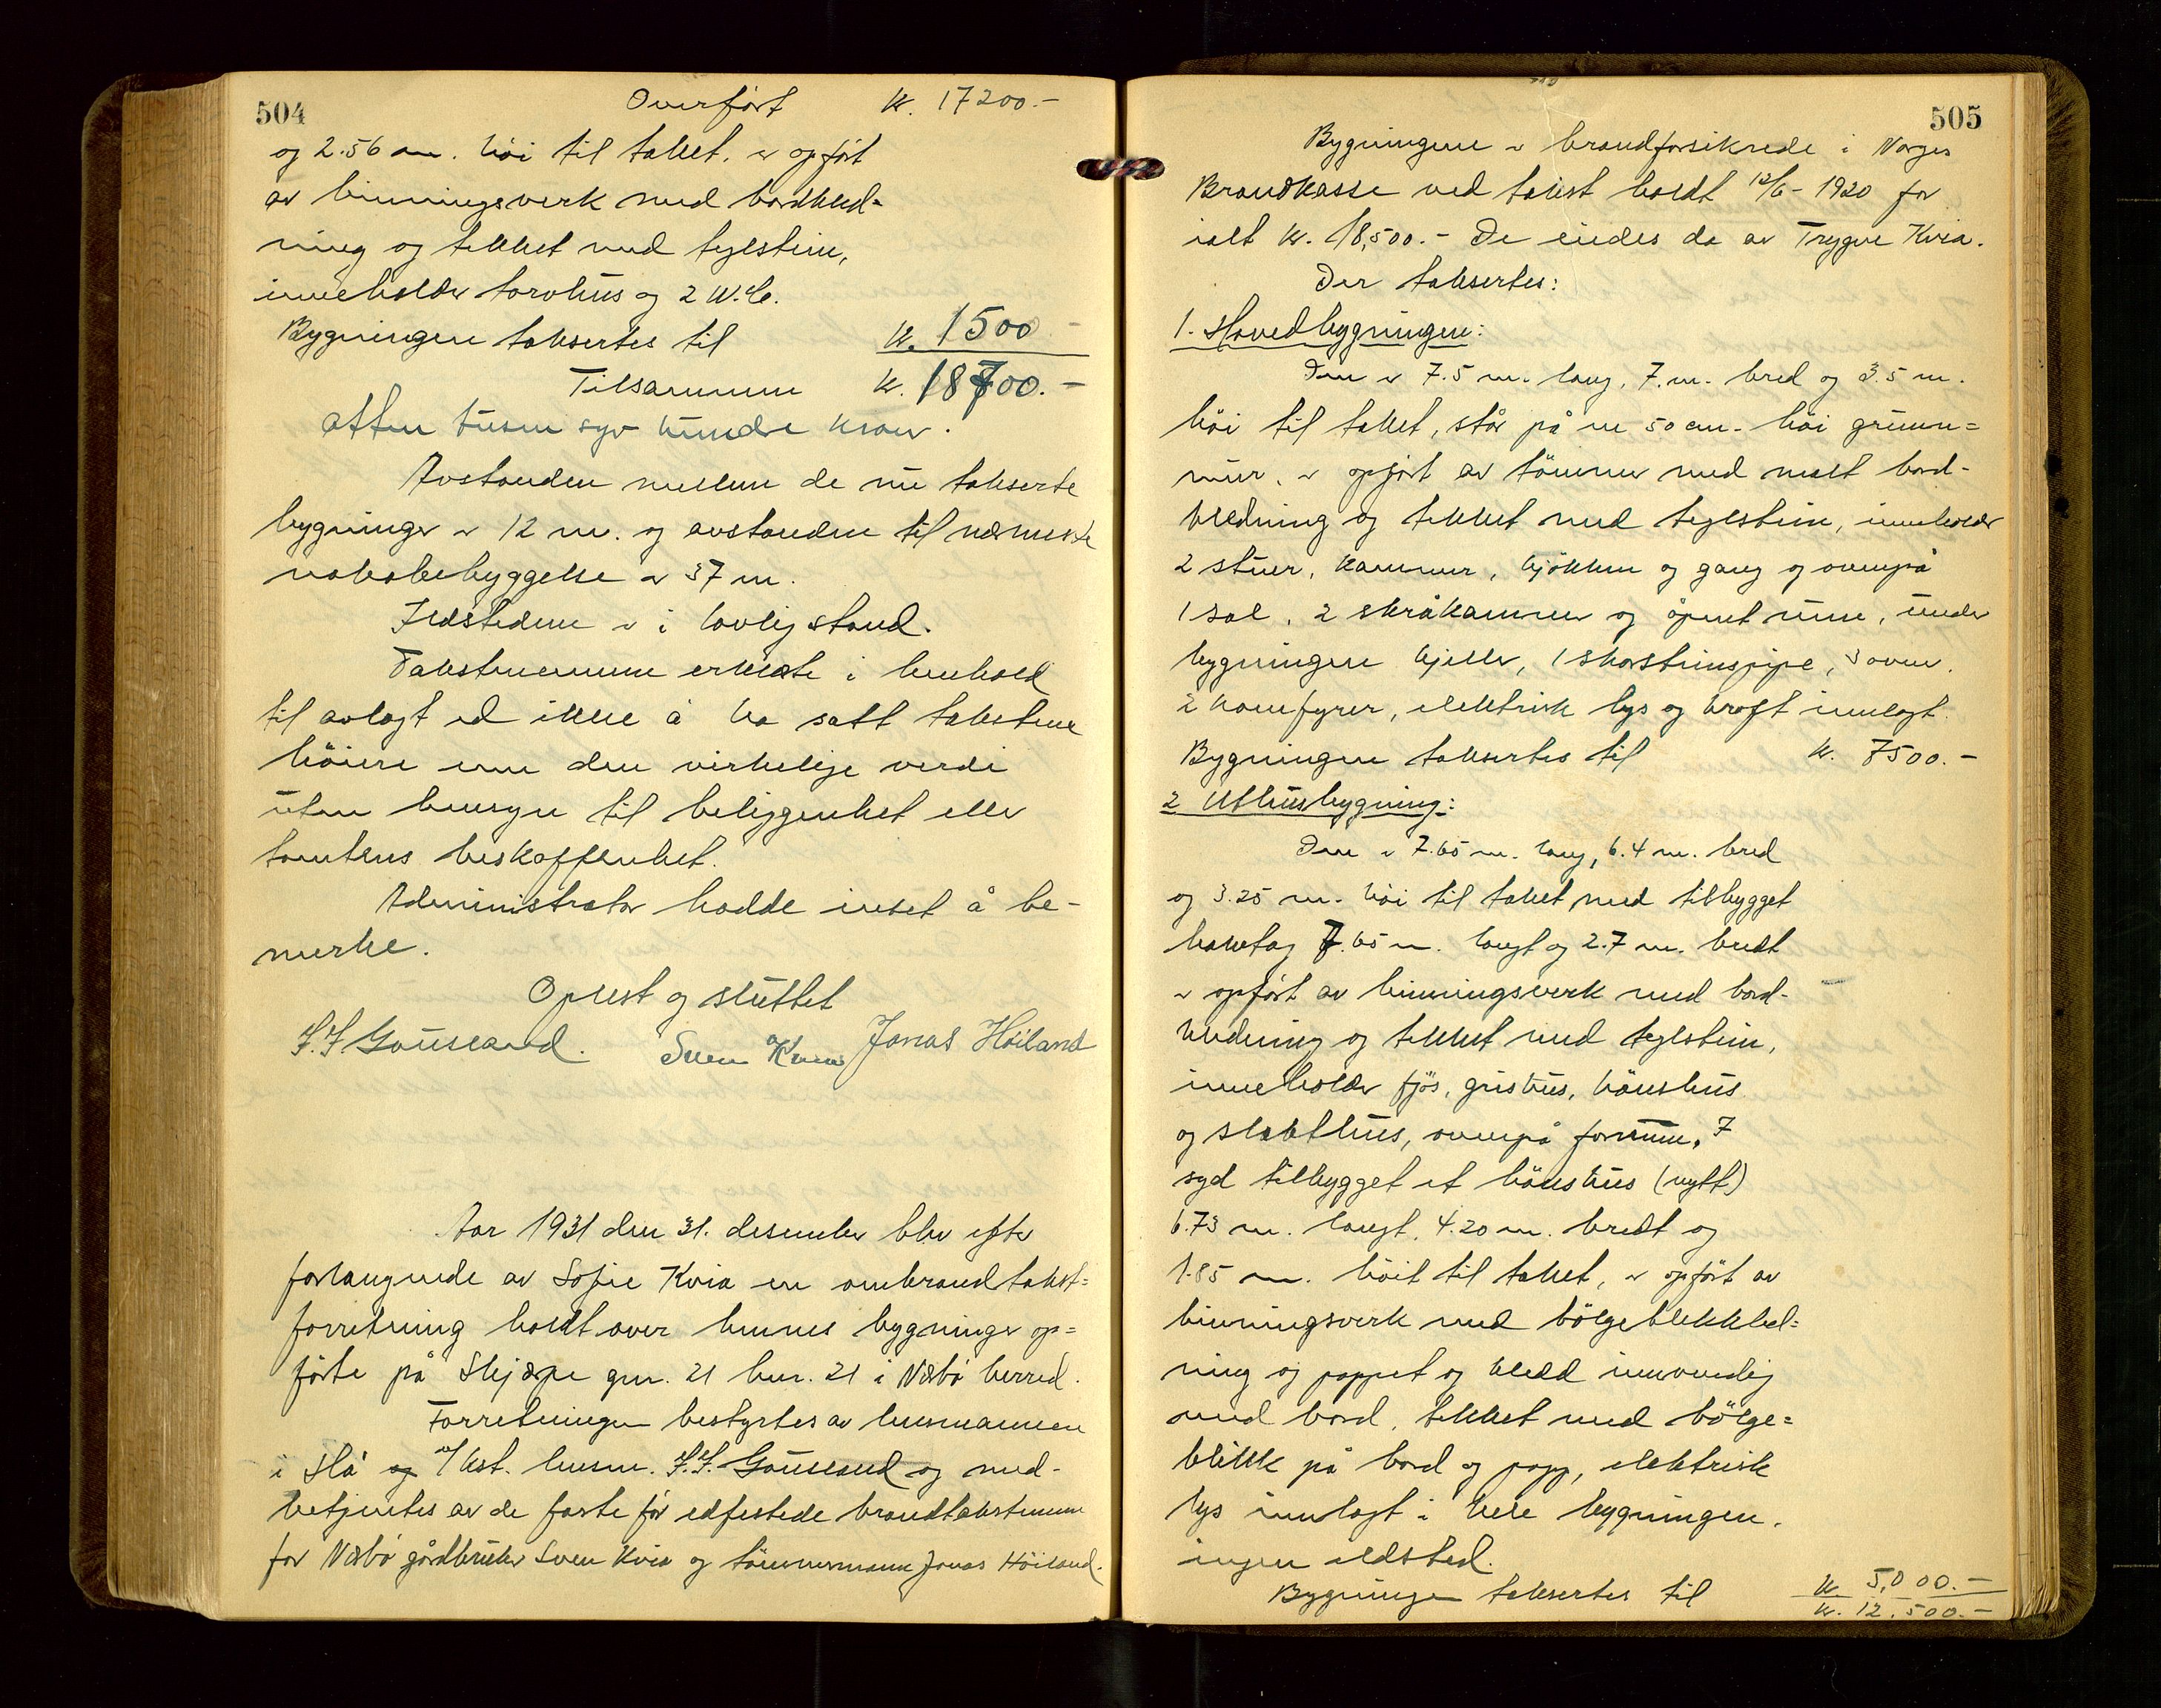 504
Overført kr. 17200.-
og 2.56 m. høi til taket, er opført
av binningsverk med bordkled=
ning og tekket med teglstein,
inneholder torvhus og 2 W.C.
Bygningen taksertes til kr. 1500 -
Tilsammen kr. 18700.-
Atten tusen syv hundre kroner.
Avstanden mellem de nu takserte
bygninger er 12 m. og avstanden til nærmeste
nabobebyggelse er 37 m.
Ildstedene er i lovlig stand.
Takstmennene erklærte i henhold
til avlagt ed ikke å ha satt takstene
høiere enn den virkelige verdi
uten hensyn til beliggenhet eller
tomtens beskaffenhet.
Administrator hadde intet å be-
merke.
Oplest og sluttet
Gauseland. Sven Kvia Jonas Höiland
Aar 1931 den 31. desember blev efter
forlangende av Sofie Kvia en ombrandtakst=
forretning holdt over hennes bygninger op=
førte på Skjærpe gnr. 21 bnr. 21 i Nærbø herred.
Forretningen bestyrtes av lensmannen
i Hå v/ kst. lensm. Gauseland og med-
betjentes av de faste før edfestede brandtakstmenn
for Nærbø gårdbruker Sven Kvia og tømmermann Jonas Höiland.
505
Bygningene er brandforsikrede i Norges
Brandkasse ved takst holdt 12/6- 1920 for
ialt kr. 18,500.- De eiedes da av Trygve Kvia.
Der taksertes:
1. Hovedbygningen:
Den er 7.5 m. lang, 7. m. bred og 3.5 m.
høi til taket, står på en 50 cm. høi grunn=
mur, er opført av tømmer med malt bord-
kledning og tekket med teglstein, inneholder
2 stuer, kammer, kjøkken og gang og ovenpå
1 sal, 2 skråkammer og åpent rum, under
bygningen kjeller, 1 skorstenspipe, 3 ovner,
2 komfyrer, elektrisk lys og kraft innlagt.
Bygningen taksertes til kr. 7500.-
2 Uthusbygning:
Den er 7.65 m. lang, 6.4 m. bred
og 3.25 m. høi til taket, med tilbygget
halvtag 7.65 m. langt og 2.7 m. bredt
er opført av binningsverk med bord-
kledning og tekket med teglstein,
inneholder fjøs, grishus, hønshus
og slakthus, ovenpå forrum. I
syd tilbygget et hønshus (nytt)
6.73 m. langt, 4.20 m. bredt og
1.85 m. høit til taket, er opført av
binningsverk med bølgeblikkled=
ning og pappet og kledd innvendig
med bord, tekket med bølge=
blikk på bord og papp, elektrisk
lys innlagt i hele bygningen,
ingen ildsted.
Bygningen taksertes til kr. 5,000.-
kr. 12,500.-